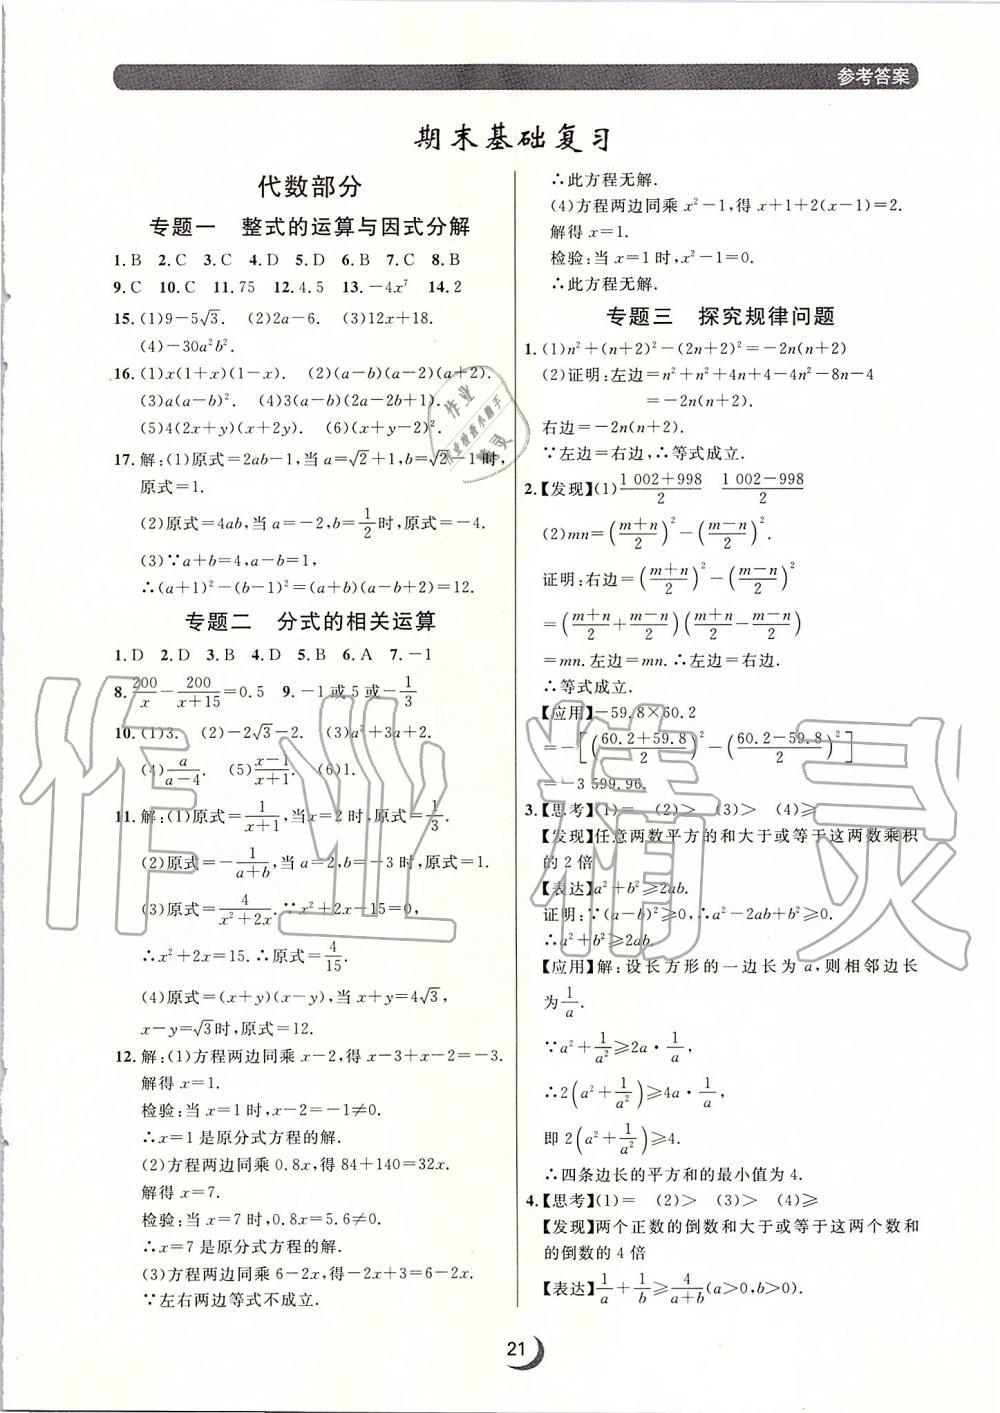 参考答案
期末基础复习
代数部分
专题一 整式的运算与因式分解
1.B 2.C 3.C 4.D 5.D 6.B 7.C 8.B
9.C 10.C 11.75 12.4.5 13.-4x⁷ 14.2
15.(1)9-5√3. (2)2a-6. (3)12x+18.
(4)-30a²b².
16.(1)x(1+x)(1-x). (2)(a-b)(a-2)(a+2).
(3)a(a-b)². (4)3(a-b)(2a-2b+1).
(5)4(2x+y)(x+2y). (6)(x+y-2)².
17.解:(1)原式=2ab-1,当 a=√2+1,b=√2-1时,
原式=1.
(2)原式=4ab,当 a=-2,b=1/2时,原式=-4.
(3)∵a+b=4,a-b=1.
∴(a+1)²-(b-1)²=(a+b)(a-b+2)=12.
专题二 分式的相关运算
1.D 2.D 3.B 4.D 5.B 6.A 7.-1
8.200/x-200/(x+15)=0.5 9.-1或5或-1/3
10.(1)3. (2)-2√3-2. (3)a²+3a+2.
(4)a/(a-4). (5)(x-1)/(x+1). (6)1.
11.解:(1)原式=1/(x+1),当x=2时,原式=1/3.
(2)原式=-1/(a+b),当a=2,b=-3时,原式=1.
(3)原式=4/(x²+2x).∵x²+2x-15=0,
∴x²+2x=15.∴原式=4/15.
(4)原式=(x+y)(x-y),当 x+y=4√3,
x-y=√3时,原式=12.
12.解:(1)方程两边同乘 x-2,得 x-3+x-2=-3.
解得 x=1.
检验:当 x=1 时,x-2=-1≠0.
∴x=1 是原分式方程的解.
(2)方程两边同乘 0.8x,得 84+140=32x.
解得 x=7.
检验:当 x=7 时,0.8x=5.6≠0.
∴x=7 是原分式方程的解.
(3)方程两边同乘 6-2x,得-12=6-2x+2x.
∵左右两边等式不成立.
∴此方程无解.
(4)方程两边同乘 x²-1,得 x+1+2(x-1)=2.
解得 x=1.
检验:当 x=1 时,x²-1=0.
∴此方程无解.
专题三 探究规律问题
1.(1)n²+(n+2)²-(2n+2)²=-2n(n+2)
(2)证明:左边=n²+n²+4n+4-4n²-8n-4
=-2n(n+2).
右边=-2n(n+2).
∵左边=右边,∴等式成立.
2.【发现】(1)(1 002+998)/2 (1 002-998)/2
(2)mn=((m+n)/2)²-((m-n)/2)².
证明:右边=((m+n)/2)²-((m-n)/2)²
=((m+n)/2+(m-n)/2)((m+n)/2-(m-n)/2)
=mn.左边=mn.∴左边=右边.
∴等式成立.
【应用】-59.8×60.2
=-[((60.2+59.8)/2)²-((60.2-59.8)/2)²]
=-3 599.96.
3.【思考】(1)= (2)> (3)> (4)≥
【发现】任意两数平方的和大于或等于这两数乘积
的 2 倍
【表达】a²+b²≥2ab.
证明:∵(a-b)²≥0,∴a²-2ab+b²≥0.
∴a²+b²≥2ab.
【应用】解:设长方形的一边长为 a,则相邻边长
为1/a.
∵a²+1/a²≥2a·1/a,
∴2(a²+1/a²)≥4a·1/a,
即 2(a²+1/a²)≥4.
∴四条边长的平方和的最小值为 4.
4.【思考】(1)= (2)> (3)> (4)≥
【发现】两个正数的倒数和大于或等于这两个数和
的倒数的 4 倍
【表达】1/a+1/b≥4/(a+b)(a>0,b>0).
21
作业精灵